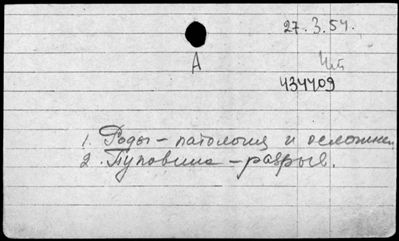 27.3.54.
А
Чит
434409
1. Роды – патология и осложнен
2. Пуповина – разрыв.